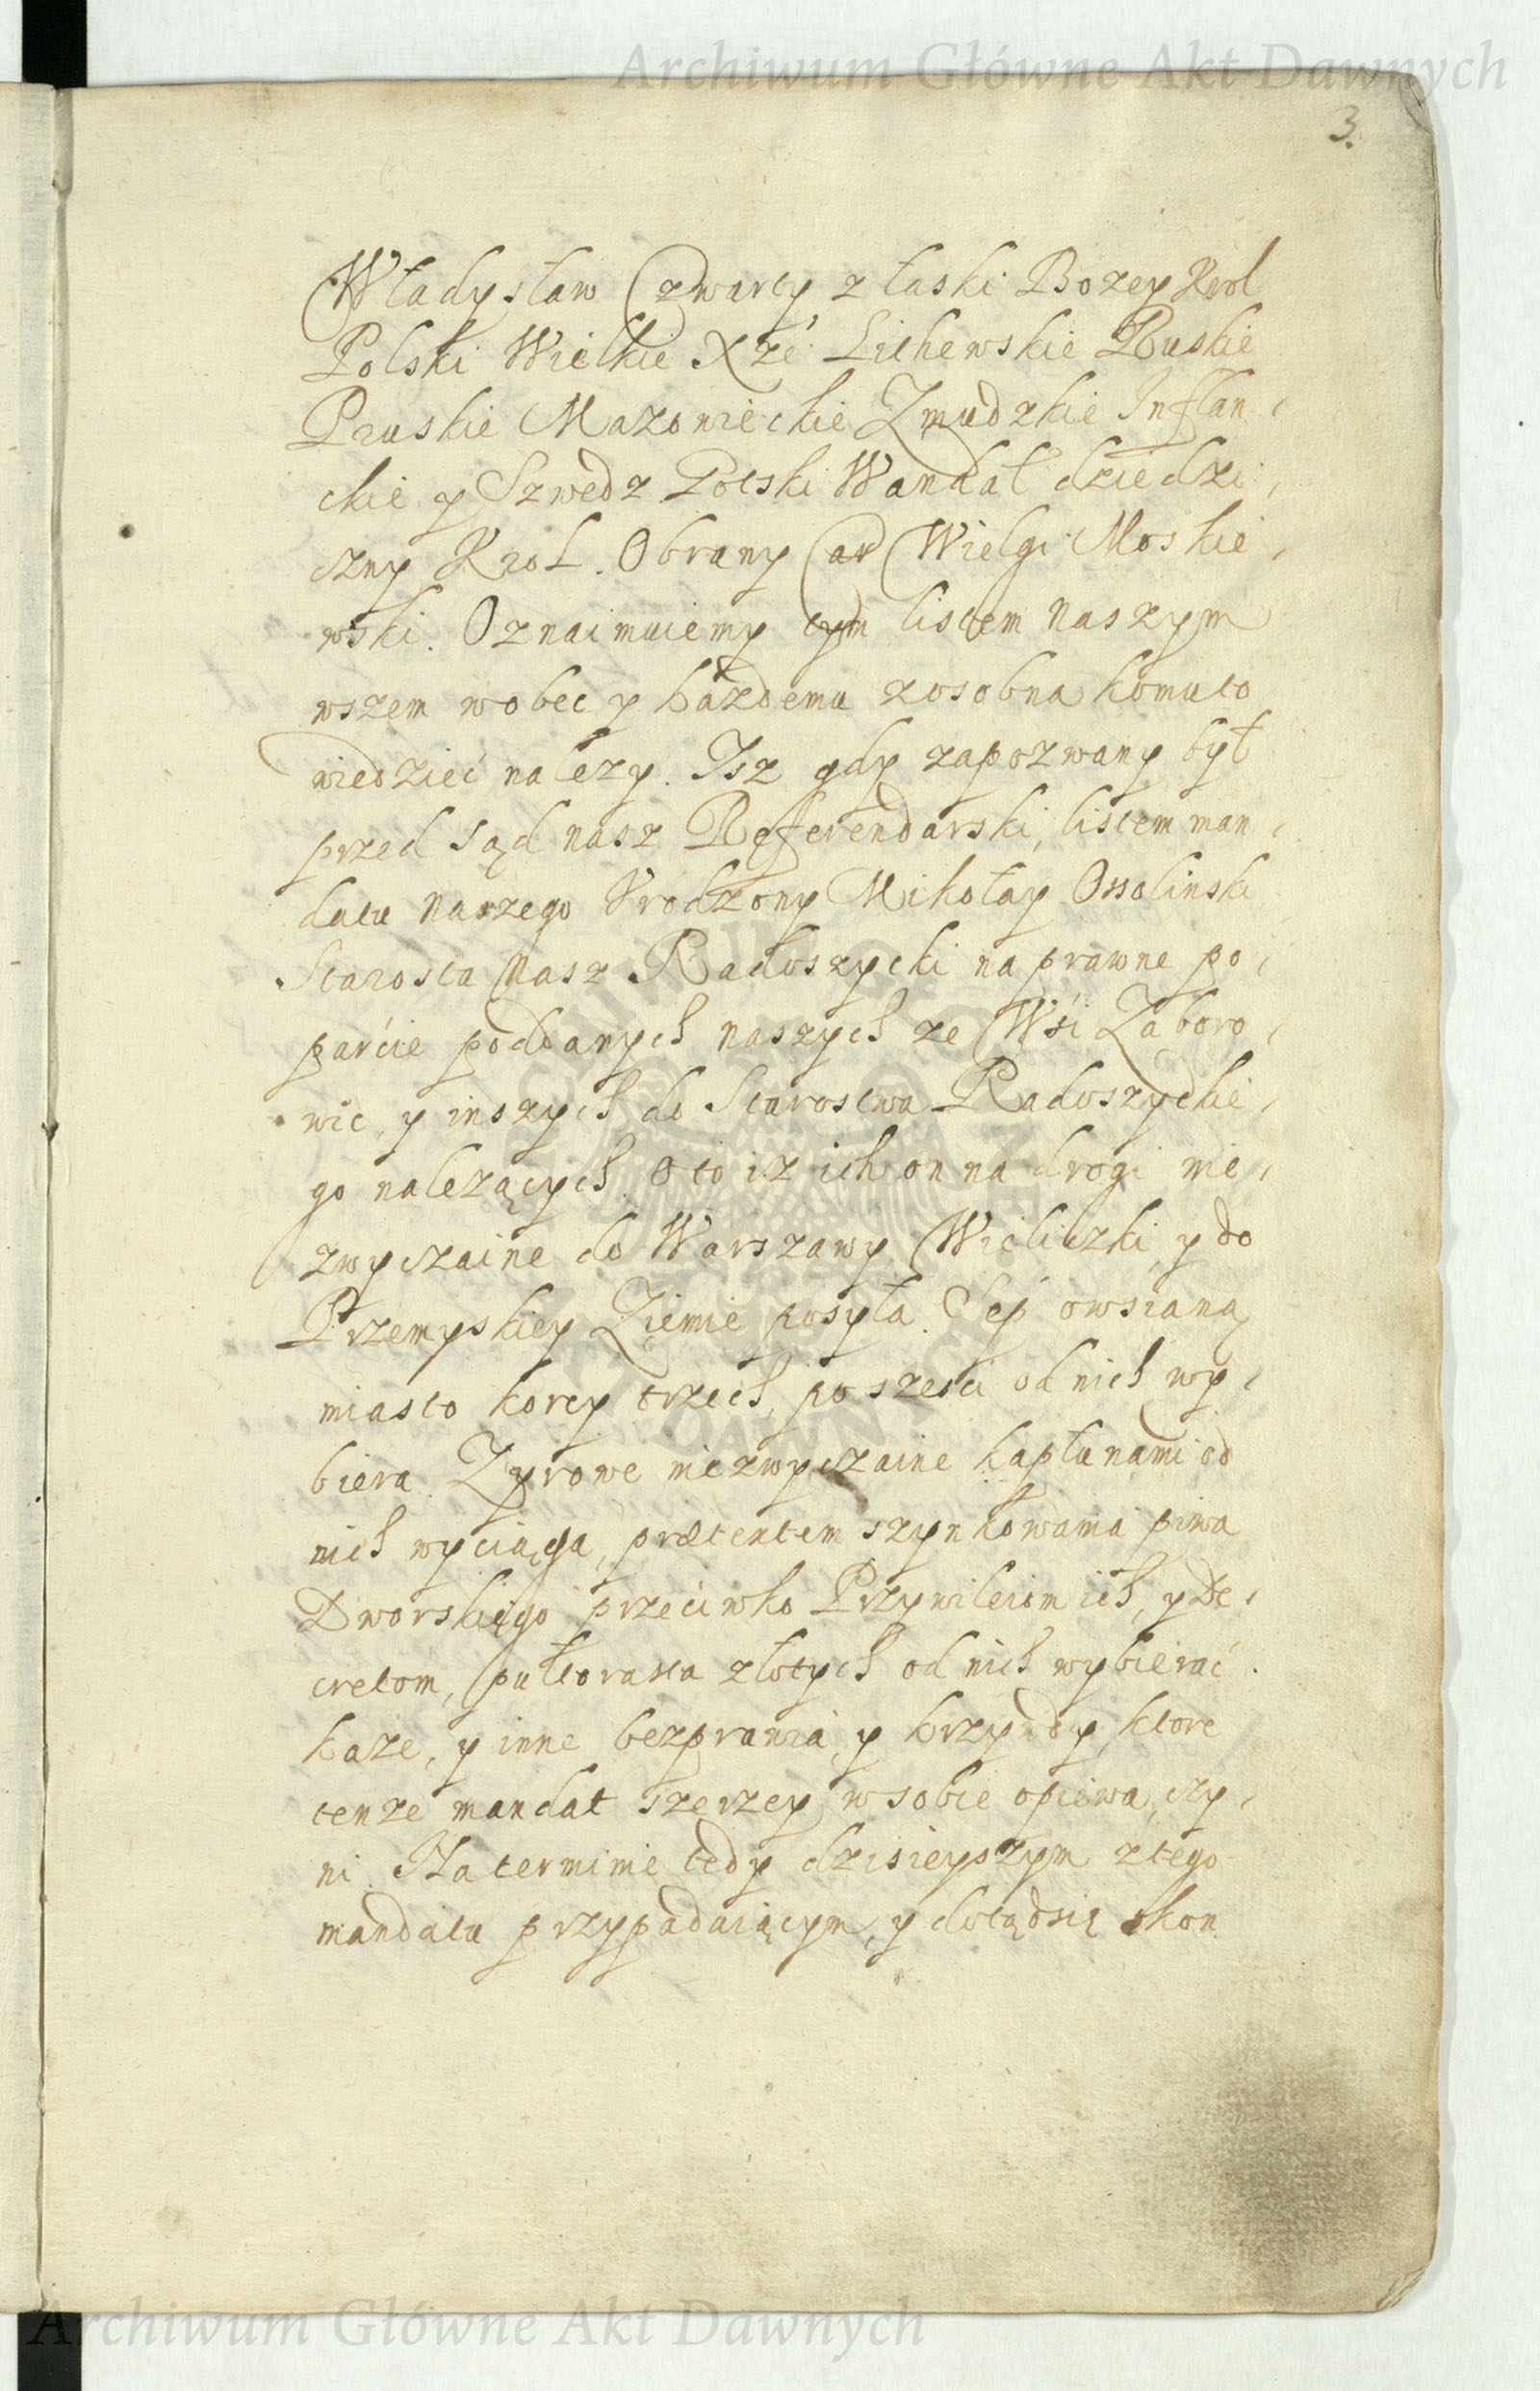 Archiwum Główne Akt Dawnych
3.
Władysław Czwarty z łaski Bozey Krol
Polski Wielkie Xże Lithewskie Ruskie
Pruskie Mazowieckie Zmudzkie Inflan,
ckie y Szwedz Potski Wandal dziedzi,
czny Krol. Obrany Car Wielgi Moskie,
wski. Oznaimuiemy tym listem Naszym
wszem wobec y kazdemu zosobna komuto
wiedzieć nalezy. Isz gdy zapozwany był
przed sąd nasz Referendarski, listem man,
datu Naszego Vrodzony Mikołay Ossolinski
Starosta Nasz Radoszycki na prawne po,
parcie poddanych naszych ze Wsi Zaboro,
wic, y inszych do Starostwa Radoszyckie,
go nalezących. Oto iz ich on na drogi nie,
zwyczaine do Warszawy, Wieliczki, y do
Przemyskiey Ziemie posyła. Sep owsianą
miasto korcy trzech, po szesci od nich wy,
biera. Zyrowe niezwyczaine kapłunami od
nich wyciąga, prætextem szynkowania piwa
Dworskiego przeciwko Przywileiom ich, y De,
cretom, pułtorasta złotych od nich wybierać
kaze, y inne bezprawia, y krzywdy, ktore
tenze mandat szerzey w sobie opiewa, czy,
ni. Na terminie tedy dzisieyszym z tego
mandatu przypadaiącym, y dotąd się kon
Archiwum Główne Akt Dawnych